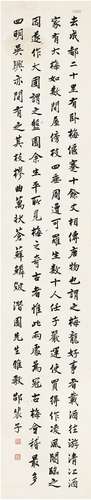 去成都二十里有卧梅偃蹇十余丈相傳唐物也謂之梅龍好事者載酒往游清江酒
家有大梅如數間屋傍枝四垂周遭可羅坐數十人任子嚴運使買得作凌風閣臨之
因遂作大圃謂之盤園余生平所見梅之奇古者惟此兩處為冠古梅會稽最多
四明吳興亦間有之其枝樛曲萬狀蒼蘚鱗皴 潛園先生雅教 邵裴子